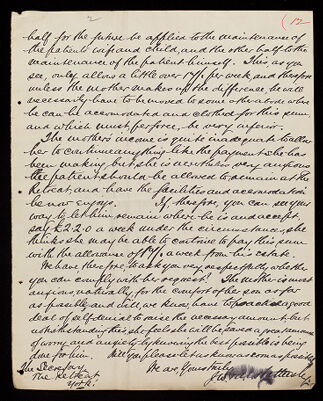 2
12
half for the future be applied to the maintenance of
the patient's wife and child, and the other half to the
maintenance of the patient himself. This, as you
see, only allows a little over 17/- per week, and therefore
unless the mother makes up the difference he will
necessarily have to be moved to some other abode where
he can be accommodated and clothed for this sum,
and which must perforce, be very inferior.
The mother's income is quite inadequate to allow
her to continue anything like the payment she has
been making, but she is nevertheless very anxious
the patient should be allowed to remain at the
Retreat, and have the facilities and accommodation
he now enjoys. If, therefore, you can see your
way to let him remain where he is and accept,
say £2.2.0 a week under the circumstances, she
thinks she may be able to contrive to pay this sum
with the allowance of 17/- a week from his estate.
We have therefore, to ask you very respectfully whether
you can comply with her request? The mother is most
anxious naturally for the comfort of her son as far
as possible, and did, we know, have to practise a good
deal of self-denial to raise the necessary amount, but
notwithstanding this, she feels she will be saved a great amount
of worry and anxiety by knowing the best possible is being
done for him. Will you please let us know as soon as possible
The Secretary We are, Yours truly,
The Retreat
York.